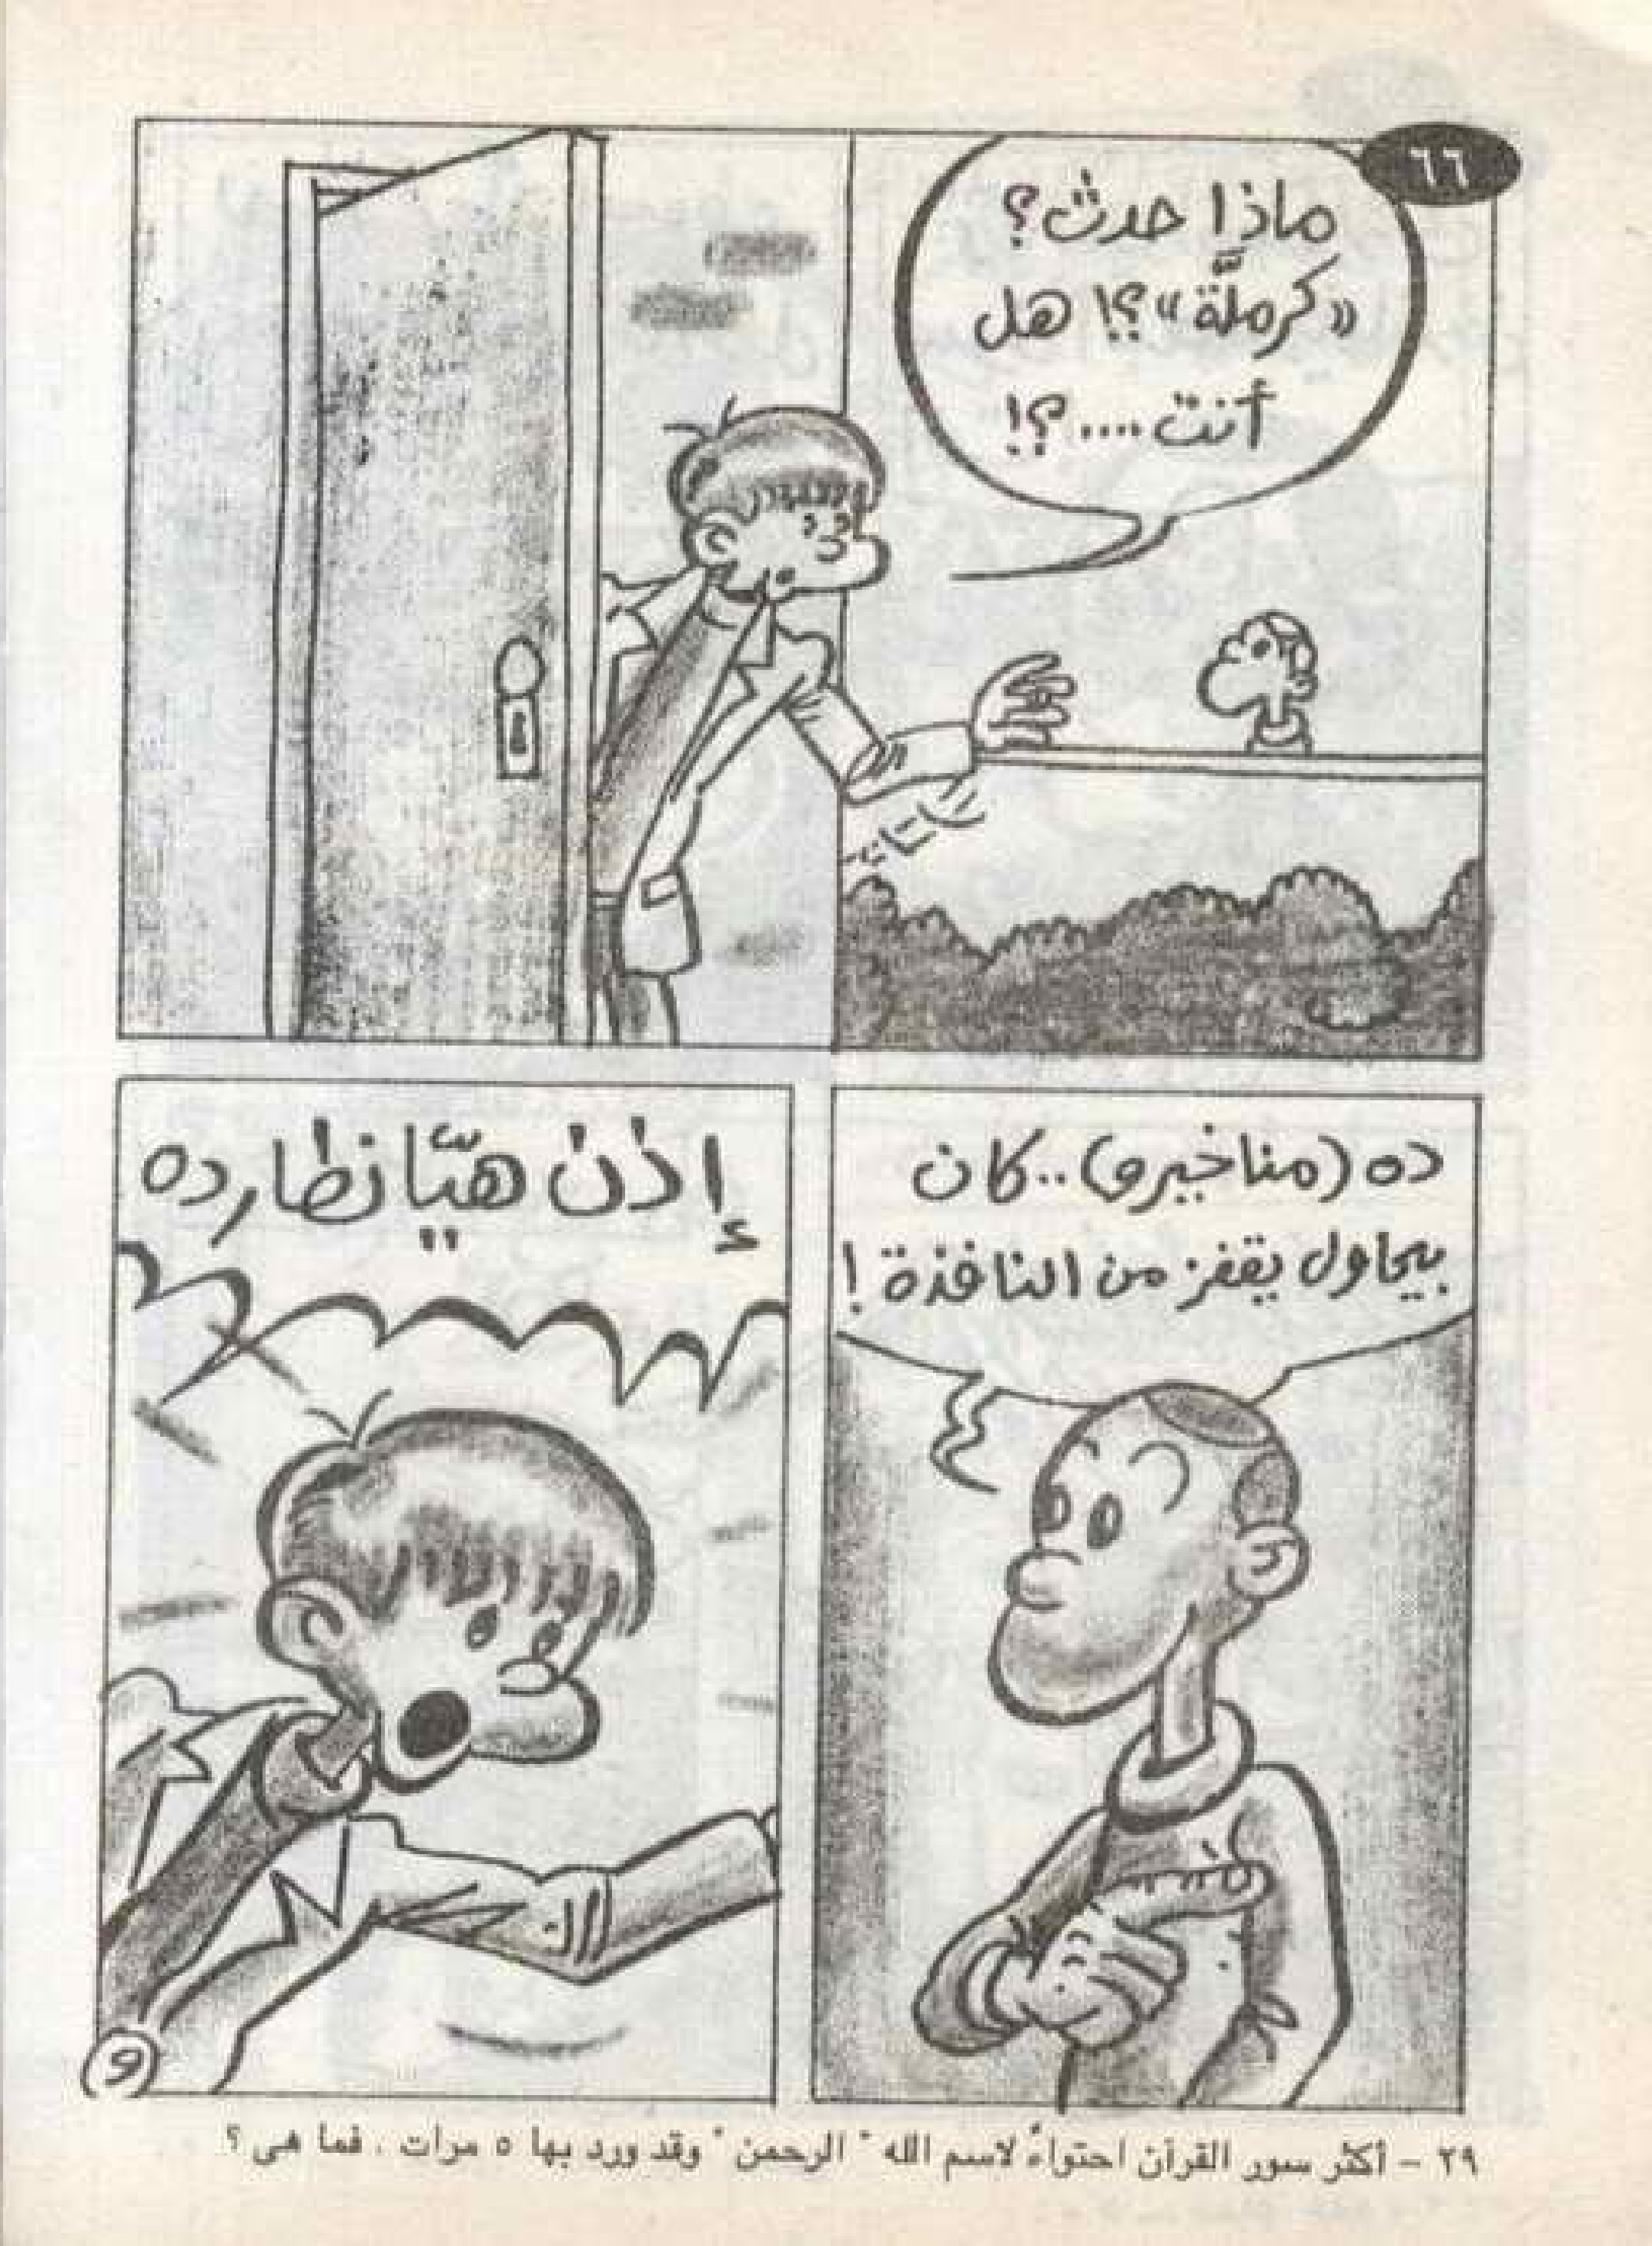 ٦٦
ماذا حدث؟
«كرملَّة»؟! هل
أنت ....؟!
ده (مناخيرو)..كان
بيحاول يقفز من النافذة !
إذن هيّا نطارده
٩
٢٩ - أكثر سور القرآن احتواءً لاسم الله " الرحمن " وقد ورد بها ٥ مرات . فما هى ؟